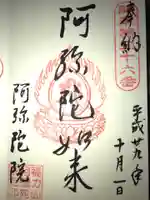 奉納
平成廿九年
十月一日
阿弥陀如来
阿弥陀院